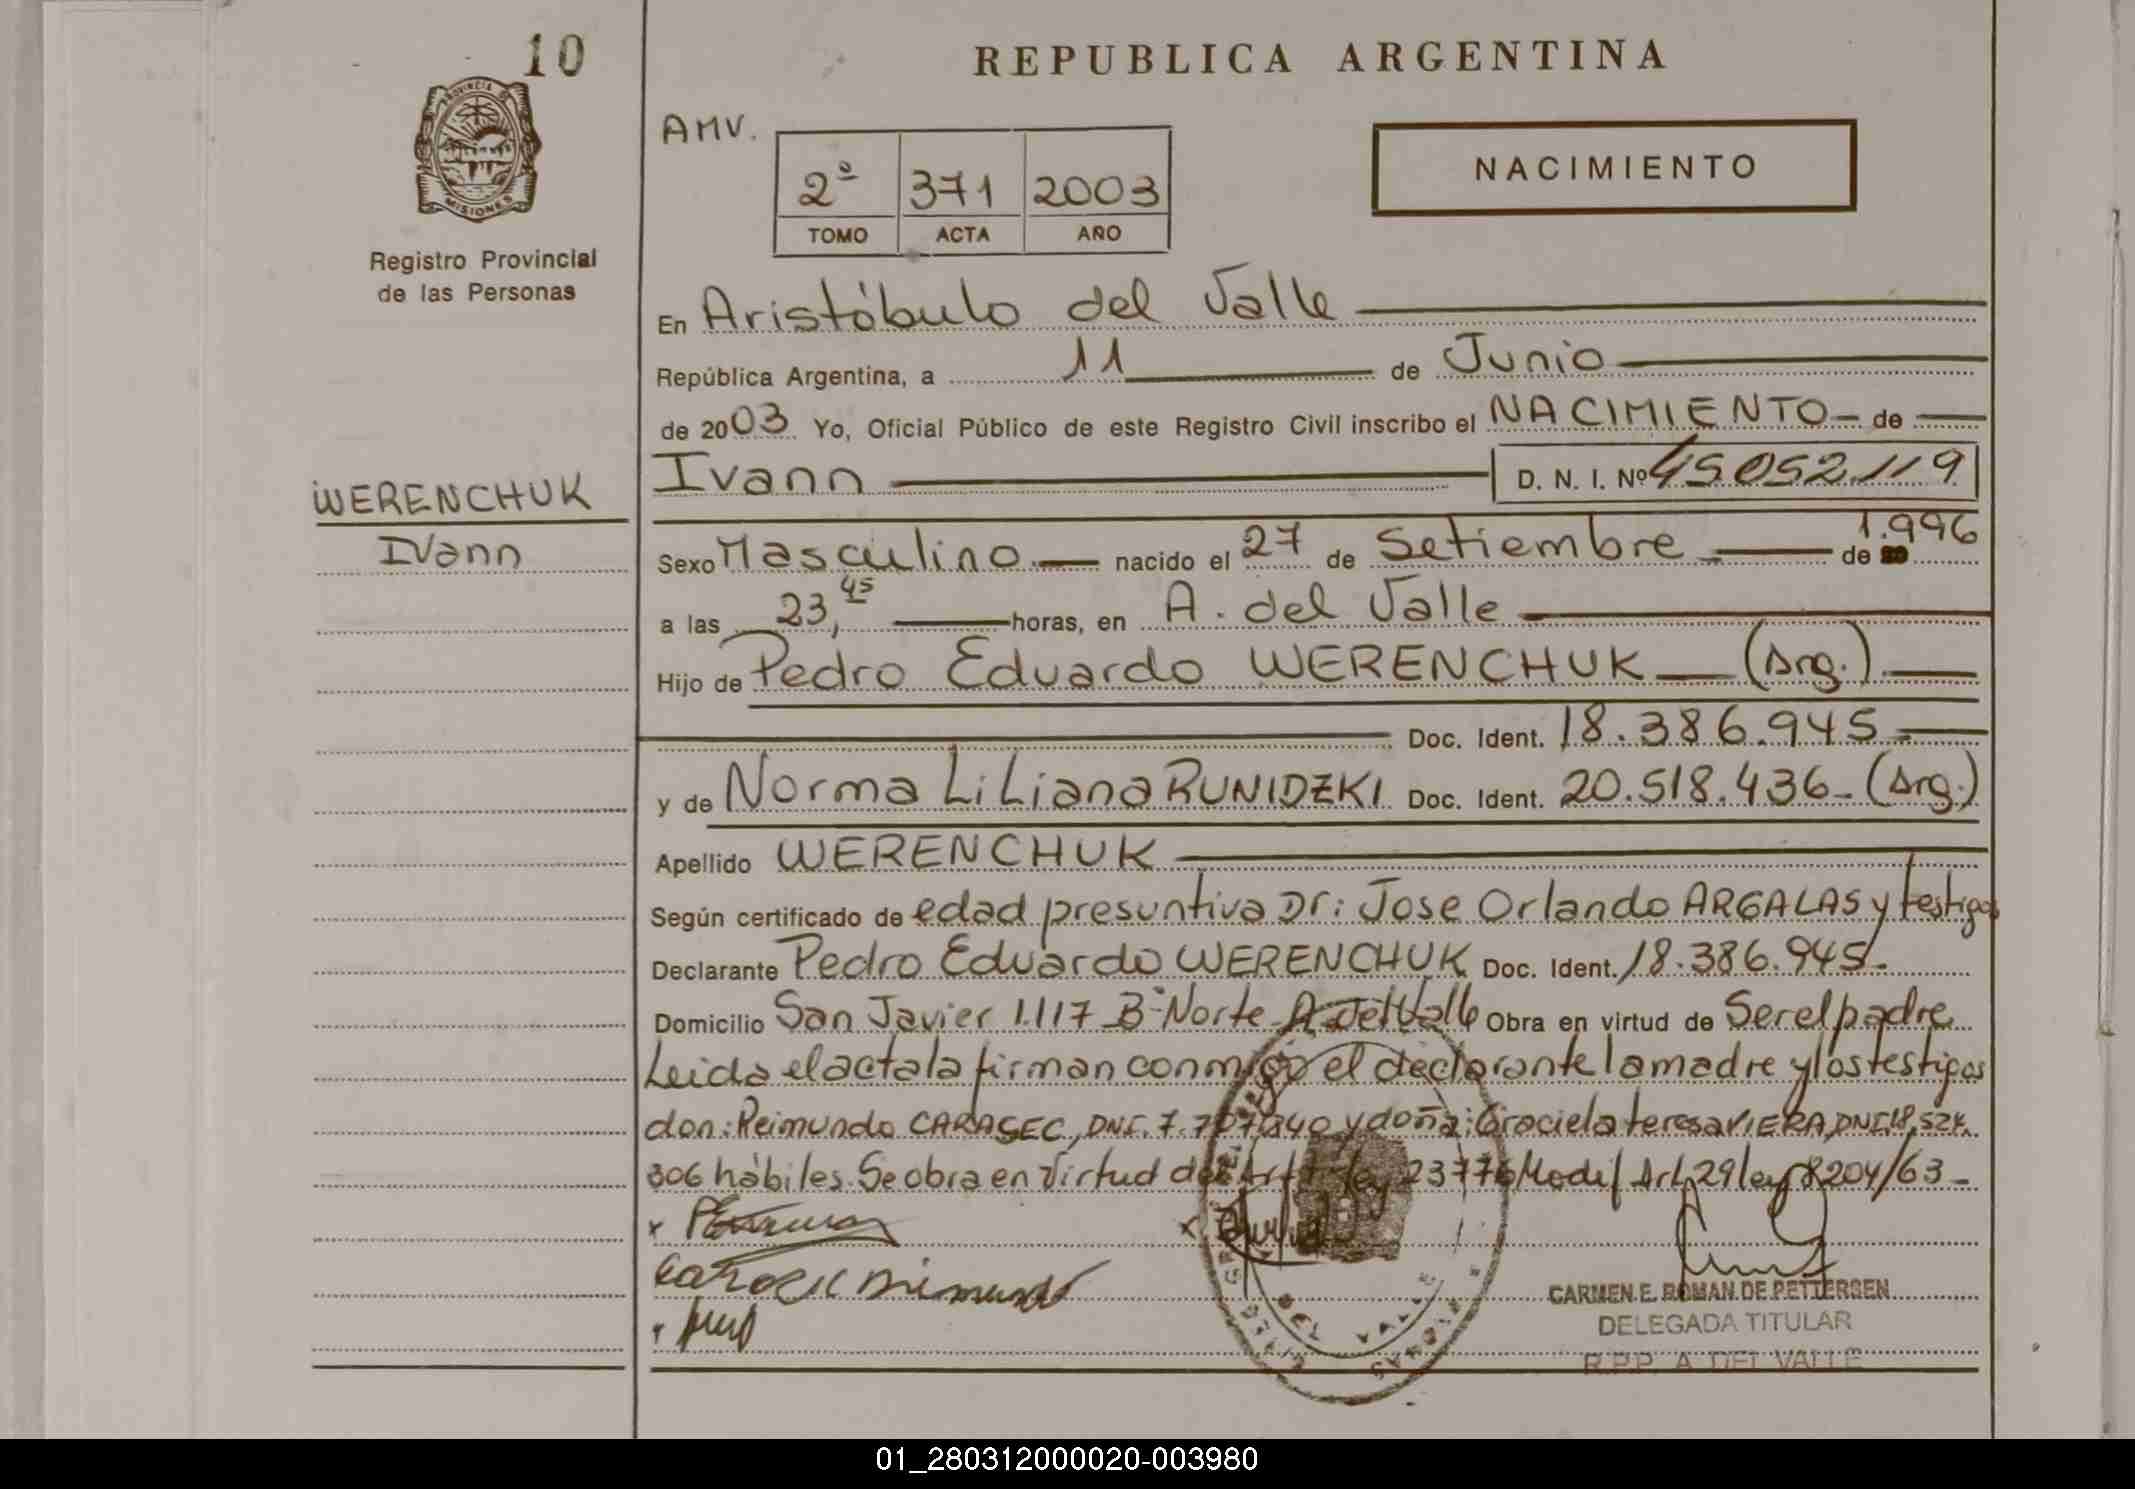 10
PROVINCIA DE
MISIONES
Registro Provincial
de las Personas
WERENCHUK
Ivann
REPUBLICA ARGENTINA
AMV.
2º 371 2003
TOMO ACTA AÑO
NACIMIENTO
En Aristóbulo del Valle
República Argentina, a 11 de Junio
de 2003 Yo, Oficial Público de este Registro Civil inscribo el NACIMIENTO de
Ivann D. N. I. Nº 45.052.119
Sexo Masculino nacido el 27 de Setiembre de 1.996
a las 23,45 horas, en A. del Valle
Hijo de Pedro Eduardo WERENCHUK (Arg.)
Doc. Ident. 18.386.945
y de Norma Liliana RUNIDZKI Doc. Ident. 20.518.436 (Arg.)
Apellido WERENCHUK
Según certificado de edad presuntiva Dr: Jose Orlando ARGALAS y testigos
Declarante Pedro Eduardo WERENCHUK Doc. Ident. 18.386.945
Domicilio San Javier 1.117 Bº Norte A del Valle Obra en virtud de Ser el padre
Leida el acta la firman conmigo el declarante la madre y los testigos
don: Reimundo CARASEC, DNI. 7.707.840 y doña: Graciela teresa VIERA, DNI. 18.524.
306 hábiles. Se obra en virtud del Art ley 23776 Modif Art. 29 ley 8204/63
CARMEN E. ROMAN DE PETTERSEN
DELEGADA TITULAR
R.P.P. A. DEL VALLE
DEL VALLE
MISIONES
01_280312000020-003980